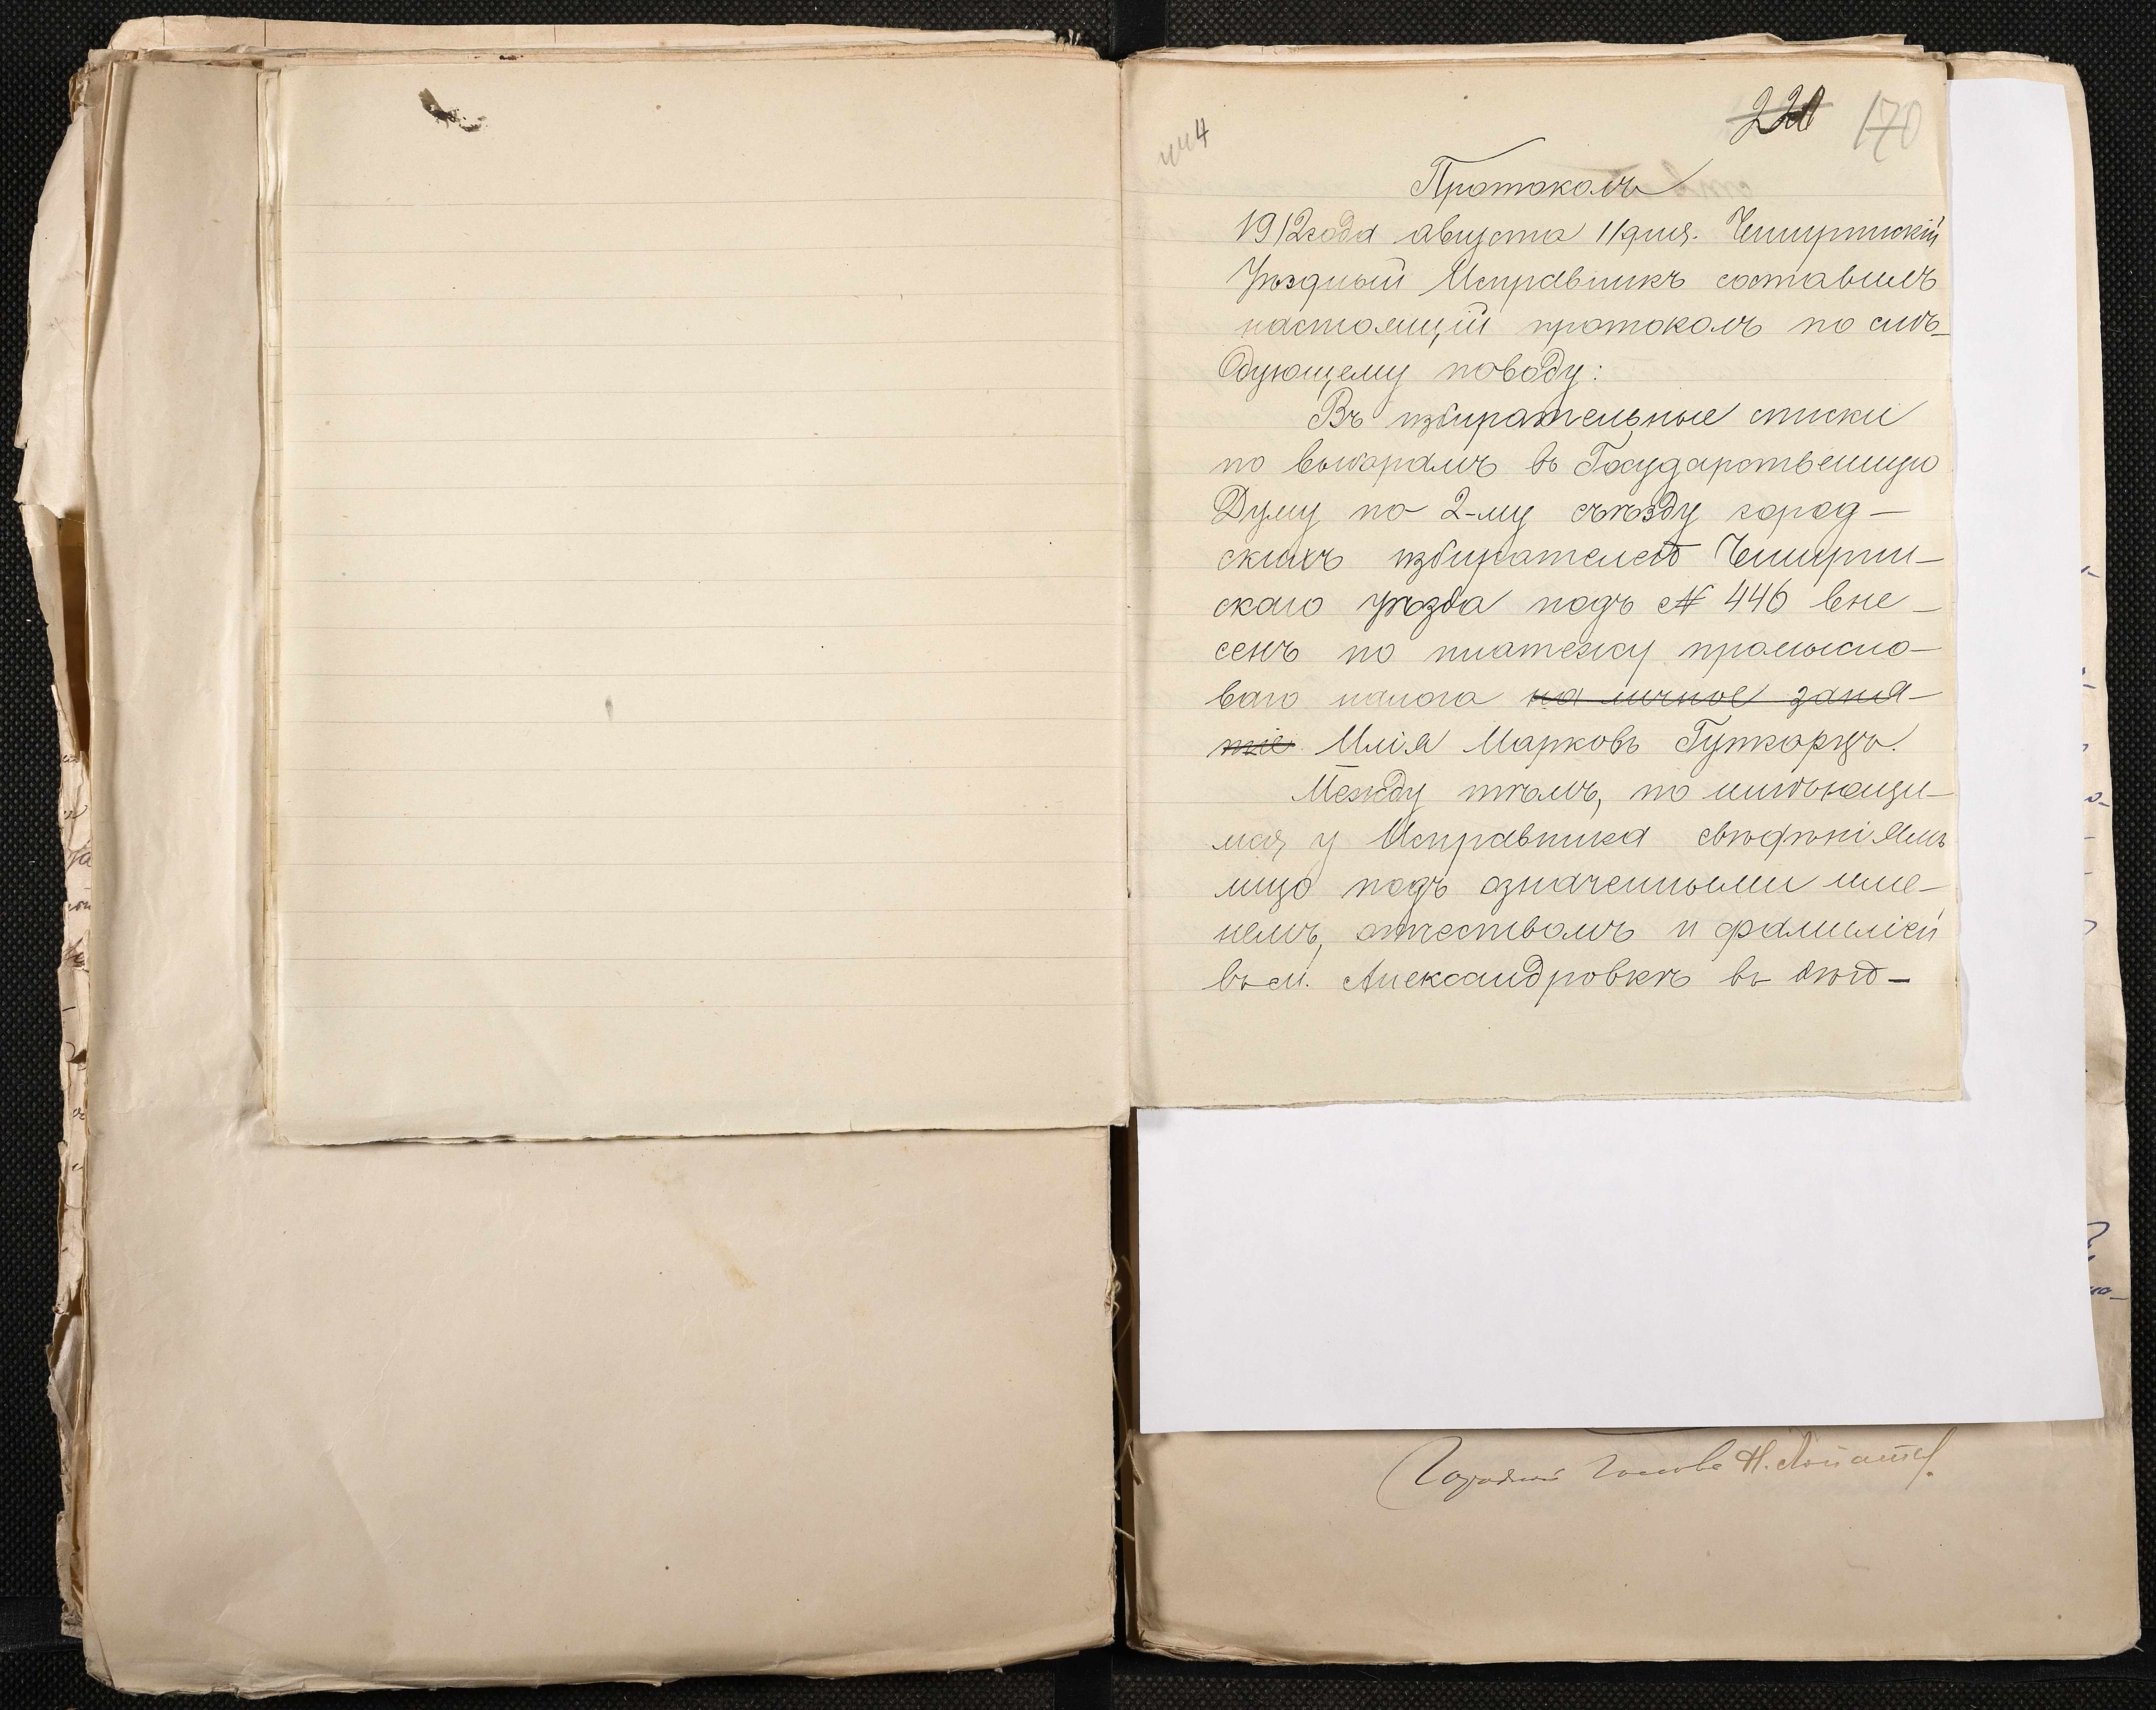 220 170
4
Протоколъ
1912 года августа 11 дня. Чигиринскій
Уѣздный Исправникъ составилъ
настоящій протоколъ по слѣ-
дующему поводу:
Въ избирательные списки
по выборамъ въ Государственную
Думу по 2-му съѣзду город-
скихъ избирателей Чигирин-
скаго уѣзда подъ № 446 вне-
сенъ по платежу промысло-
ваго налога на личное заня-
тіе Илія Марковъ
Между тѣмъ, по имѣющи-
мся у Исправника свѣдѣніямъ
лицо подъ означенными име-
немъ, отчествомъ и фамиліей
въ м. Александровкѣ въ
Городской Голова Н.